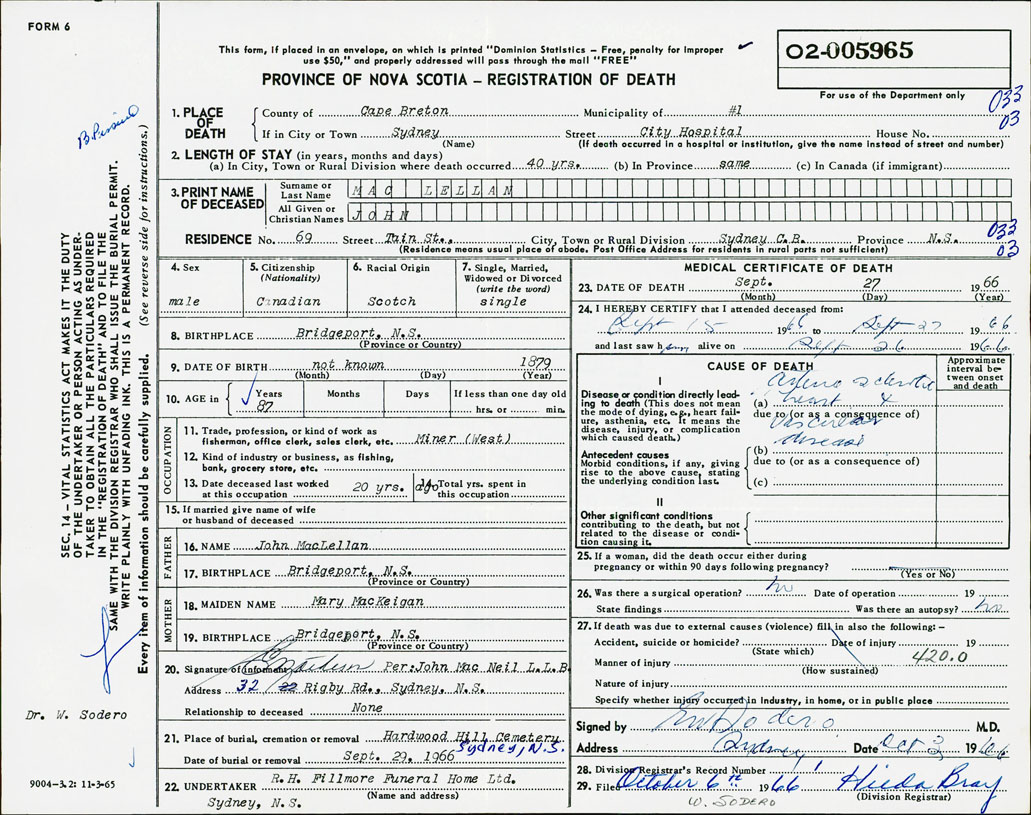 FORM 6
This form, if placed in an envelope, on which is printed "Dominion Statistics – Free, penalty for improper
use $50," and properly addressed will pass through the mail "FREE"
02-005965
For use of the Department only
PROVINCE OF NOVA SCOTIA – REGISTRATION OF DEATH
033
03
1. PLACE OF DEATH
County of Cape Breton Municipality of #1
If in City or Town Sydney Street City Hospital House No.
(Name) (If death occurred in a hospital or institution, give the name instead of street and number)
2. LENGTH OF STAY (in years, months and days)
(a) In City, Town or Rural Division where death occurred 40 yrs. (b) In Province same (c) In Canada (if immigrant)
3. PRINT NAME OF DECEASED
Surname or Last Name MAC LELLAN
All Given or Christian Names JOHN
RESIDENCE No. 69 Street Tain St., City, Town or Rural Division Sydney C.B. Province N.S.
033
03
(Residence means usual place of abode. Post Office Address for residents in rural parts not sufficient)
SEC. 14 – VITAL STATISTICS ACT MAKES IT THE DUTY
OF THE UNDERTAKER OR PERSON ACTING AS UNDER-
TAKER TO OBTAIN ALL THE PARTICULARS REQUIRED
IN THE "REGISTRATION OF DEATH" AND TO FILE THE
SAME WITH THE DIVISION REGISTRAR WHO SHALL ISSUE THE BURIAL PERMIT.
WRITE PLAINLY WITH UNFADING INK. THIS IS A PERMANENT RECORD.
Every item of information should be carefully supplied. (See reverse side for instructions.)
4. Sex
male
5. Citizenship
(Nationality)
Canadian
6. Racial Origin
Scotch
7. Single, Married,
Widowed or Divorced
(write the word)
single
8. BIRTHPLACE Bridgeport, N.S.
(Province or Country)
9. DATE OF BIRTH not known 1879
(Month) (Day) (Year)
10. AGE in
Years
87
Months
Days
If less than one day old
hrs. or min.
OCCUPATION
11. Trade, profession, or kind of work as
fisherman, office clerk, sales clerk, etc. Miner (West)
12. Kind of industry or business, as fishing,
bank, grocery store, etc.
13. Date deceased last worked
at this occupation 20 yrs. ago
14. Total yrs. spent in
this occupation
15. If married give name of wife
or husband of deceased
FATHER
16. NAME John MacLellan
17. BIRTHPLACE Bridgeport, N.S.
(Province or Country)
MOTHER
18. MAIDEN NAME Mary MacKeigan
19. BIRTHPLACE Bridgeport, N.S.
(Province or Country)
20. Signature of informant Per: John Mac Neil L.L.B.
Address 32 22 Rigby Rd., Sydney, N.S.
Relationship to deceased None
21. Place of burial, cremation or removal Hardwood Hill Cemetery
Sydney, N.S.
Date of burial or removal Sept. 29, 1966
22. UNDERTAKER R.H. Fillmore Funeral Home Ltd.
(Name and address)
Sydney, N.S.
Dr. W. Sodero
9004–3.2: 11-3-65
MEDICAL CERTIFICATE OF DEATH
23. DATE OF DEATH Sept. 27 1966
(Month) (Day) (Year)
24. I HEREBY CERTIFY that I attended deceased from:
Sept 15 1966 to Sept 27 1966
and last saw him alive on Sept 26 1966
CAUSE OF DEATH
Approximate
interval be-
tween onset
and death
I
Disease or condition directly lead-
ing to death (This does not mean
the mode of dying, e.g., heart fail-
ure, asthenia, etc. It means the
disease, injury, or complication
which caused death.)
(a) Arterio sclerotic
heart &
due to (or as a consequence of)
vascular
disease
Antecedent causes
Morbid conditions, if any, giving
rise to the above cause, stating
the underlying condition last.
(b)
due to (or as a consequence of)
(c)
II
Other significant conditions
contributing to the death, but not
related to the disease or condi-
tion causing it.
25. If a woman, did the death occur either during
pregnancy or within 90 days following pregnancy?
(Yes or No)
26. Was there a surgical operation? no Date of operation 19
State findings Was there an autopsy? no
27. If death was due to external causes (violence) fill in also the following: –
Accident, suicide or homicide? Date of injury 19
(State which)
420.0
Manner of injury
(How sustained)
Nature of injury
Specify whether injury occurred in industry, in home, or in public place
Signed by EW Sodero M.D.
Address Sydney Date Oct 3 1966
28. Division Registrar's Record Number 1
29. Filed October 6th 1966 Hilda Bray
(Division Registrar)
W. SODERO